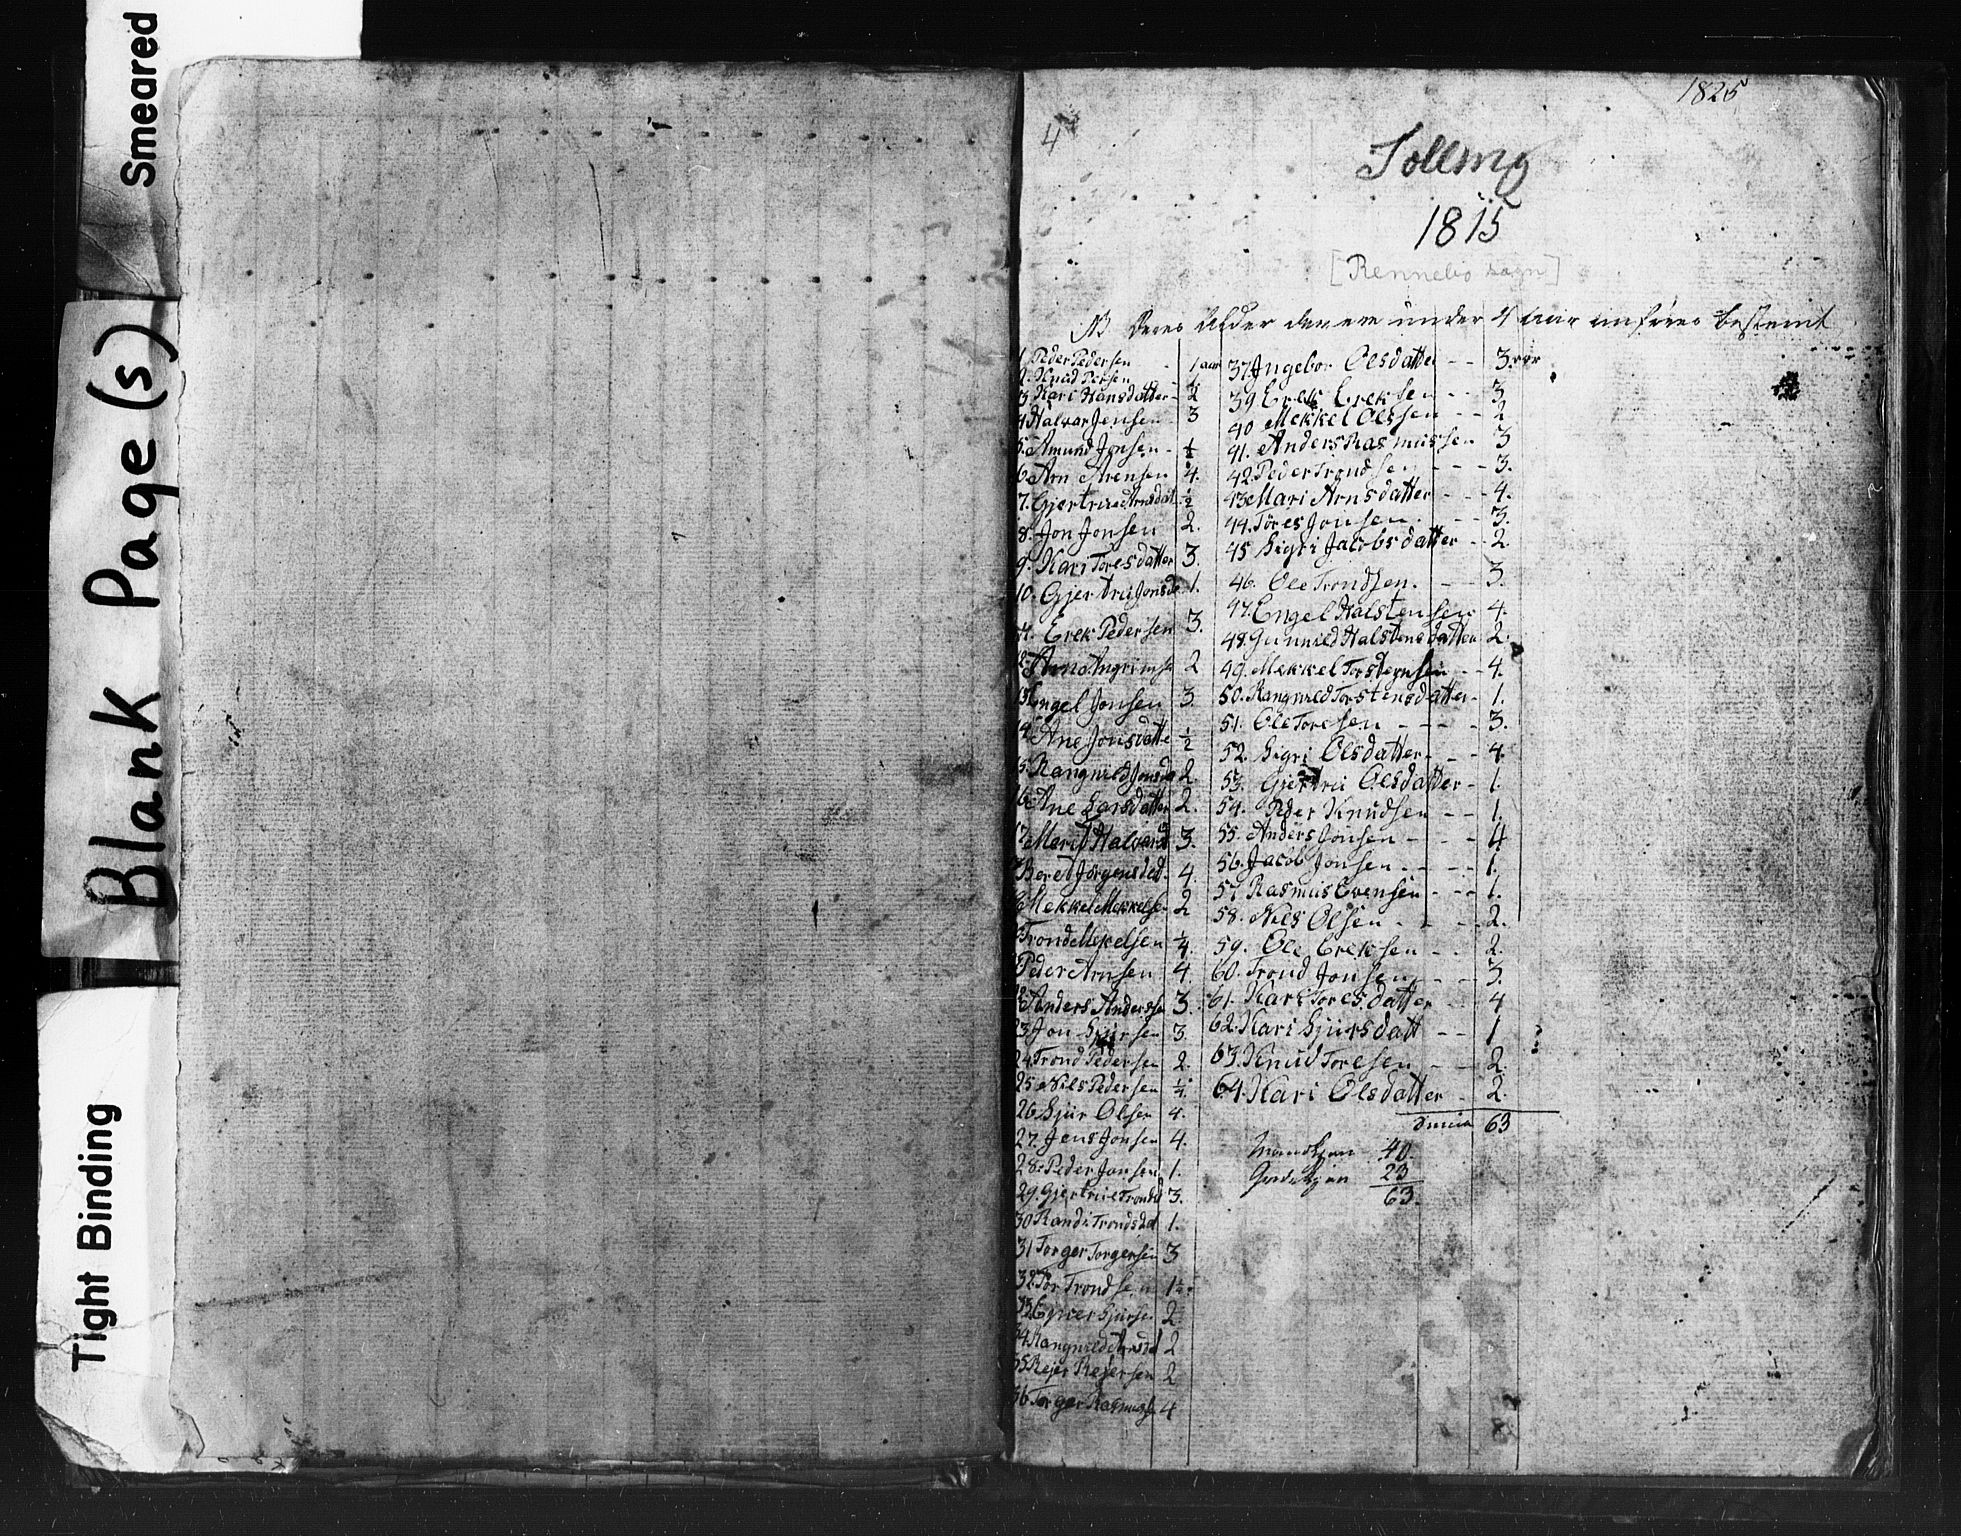 Smeared
Blank Page(s)
Tight Binding
1825
4
Tolling
1815
[Rennebo sogn]
NB Deres Alder der ere under 4 aar anføres bestemt
1. Peder Pedersen - 1 aar
2. Knud Persen -
3 Kari Hansdatter - 2
4 Halvor Jensen - 3
5. Amund Jonsen - 1/2
6. Arn Arensen 4.
7. Gjertrue Arnsdat 1/2
8. Jon Jonsen 2.
9. Kari Toresdatter 3.
10. Gjertru Jonsd 1.
11. Erek Pedersen 3.
12. Arn Angrimse 2
13. Engel Jonsen 3.
14. Ane Jonsdatte 1/2
15. Rangnild Jonsda 2
16 Ane Larsdatter 2.
17 Merit Halvorsd 3.
Beret Jørgensdat. 4.
Mekkel Mekkelsen 2
Trond Mekelsen 1/4.
Peder Arnsen 4.
Anders Anderssen 3.
23 Jon Sjursen 3.
24 Trond Pedersen 2.
25 Nils Pedersen 1/4.
26 Sjur Olsen 4.
27. Jens Jonsen 4.
28. Peder Jonsen 1.
29. Gjertrue Trondsd 3.
30 Rand. Trondsdat 1.
31 Torger Torgersen 3
32. Tor Trondsen 1 1/2
33 Sjursen 2
34 Rangnild Arnsdat 2
35 Rejer Rejersen 2
36 Torger Rasmussen 4
37 Ingebor Olsdatter - - 3. aar
39 Erek Ereksen - - 3
40 Mekkel Olssen - - 2
41. Anders Rasmussen 3
42. Peder Trondsen - - - 3.
43 Mari Arnsdatter - - - 4.
44. Tores Jonsen. - - 3.
45 Sigri Jacobsdatter - - 2.
46. Ole Trondsen. - - 3.
47. Engel Halstensen 4.
48. Gunnild Halstensdatter 2.
49. Mekkel Torstensen - - 4.
50. Rangnild Torstensdatter - 1.
51. Ole Toresen - - - - 3.
52. Sigri Olsdatter - - 4.
53. Gjertru Olsdatter - 1.
54. Peder Knudsen - - 1.
55. Anders Jonsen - - - 4
56. Jacob Jonsen - - - - 1.
57 Rasmus Evensen - - - 1.
58. Nils Olsen - - - 2.
59. Ole Ereksen - - 2.
60. Trond Jonsen - - 3.
61. Kari Toresdatter - 4
62. Kari Sjursdatt - - 1
63. Knud Toresen - - 2.
64. Kari Olsdatter - 2.
63
Mandkjøn 40.
Qvindekjøn 23
63.